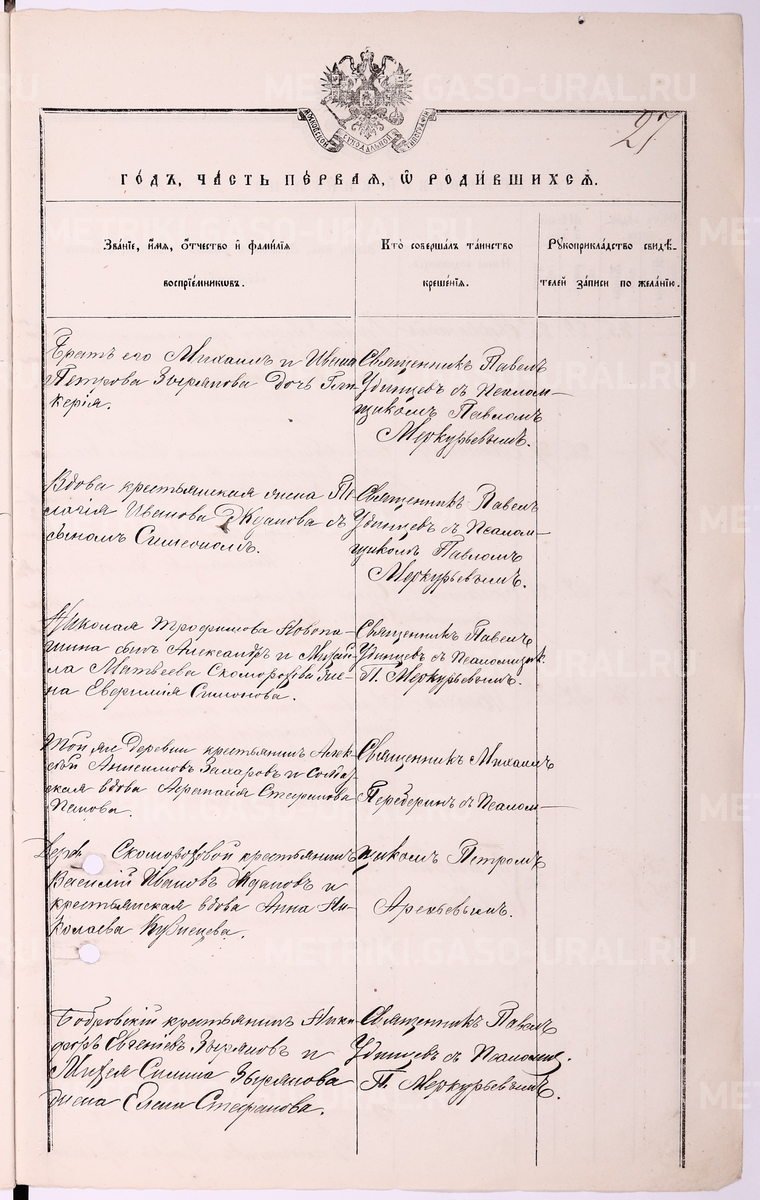 27
МОСКОВСКОЙ СѴНОДАЛЬНОЙ ТИПОГРАФІИ
ГОДЪ, ЧАСТЬ ПЕРВАЯ, Ѡ РОДИВШИХСЯ.
Званіе, имя, отчество и фамилія
воспріемниковъ.
Кто совершалъ таинство
крещенія.
Рукоприкладство свидѣ-
телей записи по желанію.
Братъ его Михаилъ и Ивана
Петрова Зырянова дочь Гли-
керія.
Священникъ Павелъ
Удинцевъ съ Псалом-
щикомъ Павломъ
Меркурьевымъ.
Вдова крестьянская жена Пе-
лагія Иванова Жданова съ
сыномъ Симеономъ.
Священникъ Павелъ
Удинцевъ съ Псалом-
щикомъ Павломъ
Меркурьевымъ.
Николая Трофимова Новопа-
шина сынъ Александръ и Михаи-
ла Матвеева Скоморохова же-
на Евфимия Симонова.
Священникъ Павелъ
Удинцевъ съ Псаломщик.
П. Меркурьевымъ.
Той же деревни крестьянинъ Алек-
сѣй Анисимовъ Захаровъ и
вдова Стефанова
Панова.
Священникъ Михаилъ
съ Псалом-
щикомъ Петромъ
Арефьевымъ.
Дер. Скомороховой крестьянинъ
Василій Ивановъ Ждановъ и
крестьянская вдова Анна Ни-
колаева Кузнецова.
Бобровскій крестьянинъ Ники-
форъ Евгеніевъ Зыряновъ и
Силина Зырянова
жена Елена Стефанова.
Священникъ Павелъ
Удинцевъ съ Псаломщ.
П. Меркурьевымъ.
METRIKI.GASO-URAL.RU